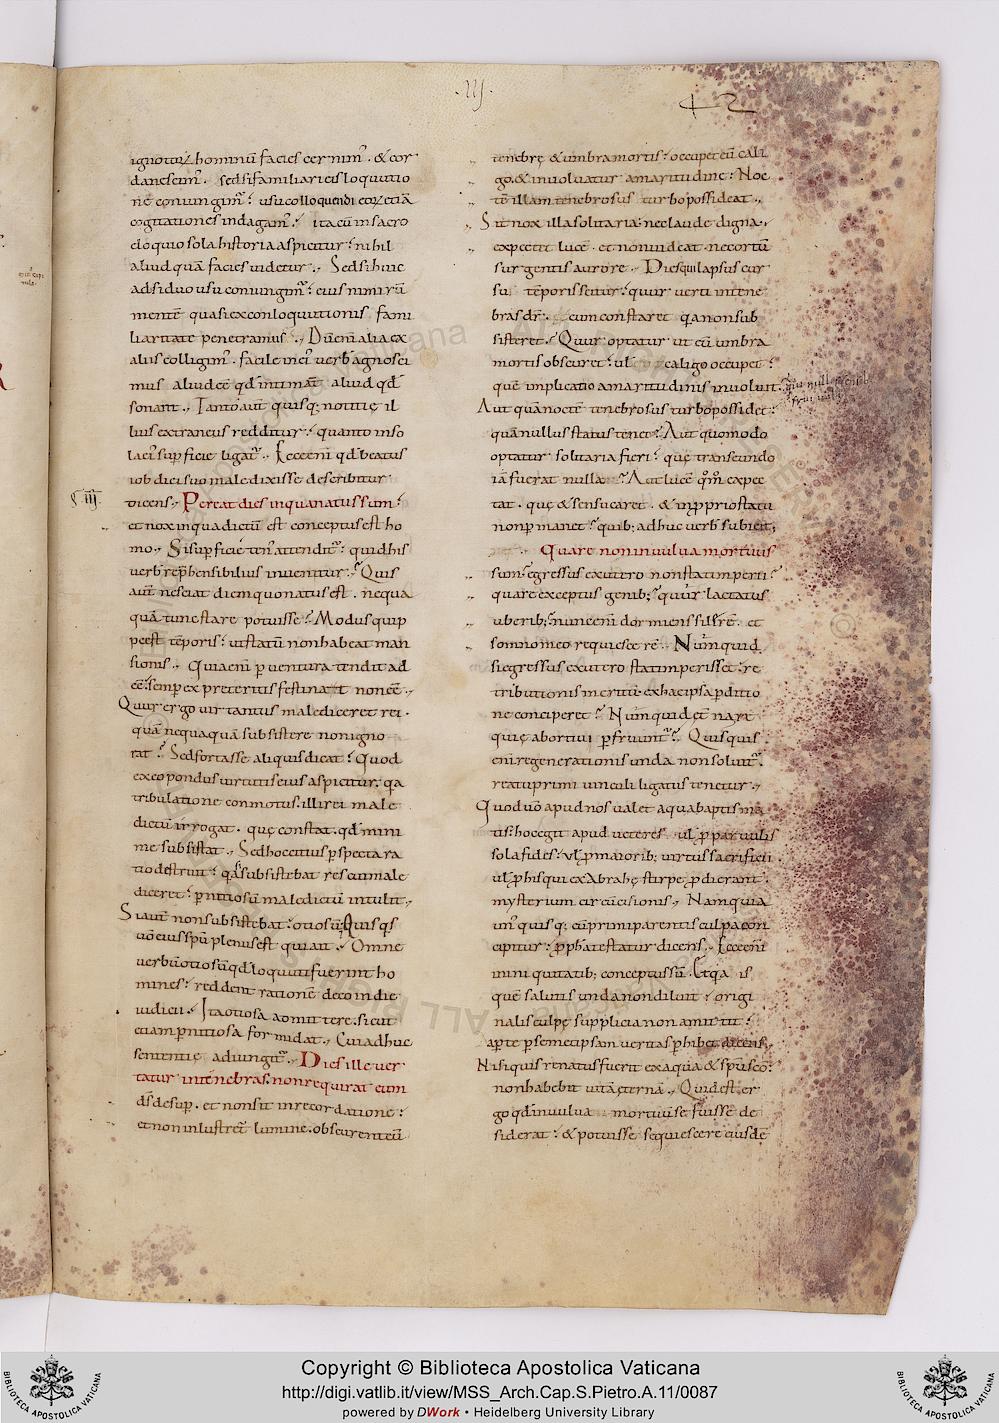 .III.
42
ignotorū hominū facies cernimꝰ. & cor
da nescimꝰ. sed si familiari eis loquutio
ne coniungimꝰ. usu colloquendi eorū etiā
cogitationes indagamꝰ. ita cū in sacro
eloquio sola historia aspicitur. nihil
aliud quā facies videtur. Sed si huic
adsiduo usu coniungimꝰ. eius nimirū
mentē quasi ex conloquutionis fami
liaritate penetramus. Dū enī alia ex
aliis colligimꝰ. facile in eiꝰ verbis agnosci
mus aliud eē qđ intimant aliud qđ
sonant. Tanto aūt quisq; notitię il
lius extraneus redditur. quanto in so
la eiꝰ superficie ligatꝰ. Ecce enī qđ beatus
iob diei suo maledixisse describitur
dicens. Pereat dies in qua natus sum.
et nox in qua dictū est conceptus est ho
mo. Si superficie tenꝰ attenditꝰ. quid his
verbis reprehensibilius invenitur. Quis
aūt nesciat diem quo natus est. nequa
quā tunc stare potuisse. Modus quip
pe est tēporis. ut statū non habeat man
sionis. Quia enī per ventura tendit ad
eē. semper ex preteritis festinat non eē.
Quur ergo vir tantus malediceret rei.
quā nequaquā subsistere non igno
rat. Sed fortasse aliquis dicat. Quod
ex eo pondus virtutis eius aspicitur. qa
tribulatione conmotus. illi rei male
dictū irrogat. quę constat. qđ mini
me subsistat. Sed hoc citius perspecta ra
tio destruit. qa si subsistebat res cui male
diceret. pernitiosū maledictū intulit.
Si aūt non subsistebat. otiosū. Quisqs
vō eius spū plenus est qui ait. Omne
verbū otiosū qđ loquuti fuerint ho
mines. reddent rationē de eo in die
iudicii. Ita otiosa admittere. sicut
etiam pernitiosa formidat. Cui adhuc
sententię adiungitꝰ. Dies ille ver
tatur in tenebras. non requirat eum
ds̄ desuper. et non sit in recordatione.
et non inlustret lumine. obscurent eū
tenebrę & umbra mortis. occupet eū cali
go. & involvatur amaritudine. Noc
tē illam tenebrosus turbo possideat.
Sit nox illa solitaria. nec laude digna.
expectet lucē. et non videat. nec ortū
surgentis aurore. Dies qui lapsu cur
su tēporis scitur. quur verti in tene
bras dr̄. Et cum constaret qa non sub
sisteret. Quur optatur ut eū umbra
mortis obscuret. vel caligo occupet.
quē implicatio amaritudinis involvit.
Aut quā noctē tenebrosus turbo possidet.
quā nullus status tenet. Aut quomodo
optatur solitaria fieri. quę transeundo
iā fuerat nulla. Aut lucē qm̄ expec
tat. quę & sensu caret. & in proprio statu
non permanet. quib; adhuc verbis subicit;
Quare non in vulva mortuus
sum. egressus ex utero non statim perii.
quare exceptus genib; quur lactatus
uberib; nunc enī dormiens silerē. et
somno meo requiescerē. Numquid
si egressus ex utero statim perisset. re
tributionis meritū. ex hac ipsa perditio
ne conciperet. Numquid ęterna re
quie abortivi perfruuntꝰ. Quisquis
enī regenerationis unda non solvitꝰ.
reatu primi vinculi ligatus tenetur.
Quod vō apud nos valet aqua baptisma
tis. hoc egit apud veteres. vel pro parvulis
sola fides. vel pro maiorib; virtus sacrificii
vel pro his qui ex Abrahę stirpe prodierant.
mysterium circumcisionis. Nam quia
unꝰquisq; cū primi parentis culpa con
cipitur. propheta testatur dicens. Ecce enī
in iniquitatib; conceptus sū. Et qa is
quē salutis unda non diluit. origi
nalis culpę supplicia non amittit.
aperte per semetipsam veritas perhibet dicens.
Nisi quis renatus fuerit ex aqua & spū sc̄o.
non habebit vitā ęternā. Quid est er
go qđ in vulva mortuū se fuisse de
siderat. & potuisse se quiescere eiusdē
Copyright © Biblioteca Apostolica Vaticana
http://digi.vatlib.it/view/MSS_Arch.Cap.S.Pietro.A.11/0087
powered by DWork • Heidelberg University Library